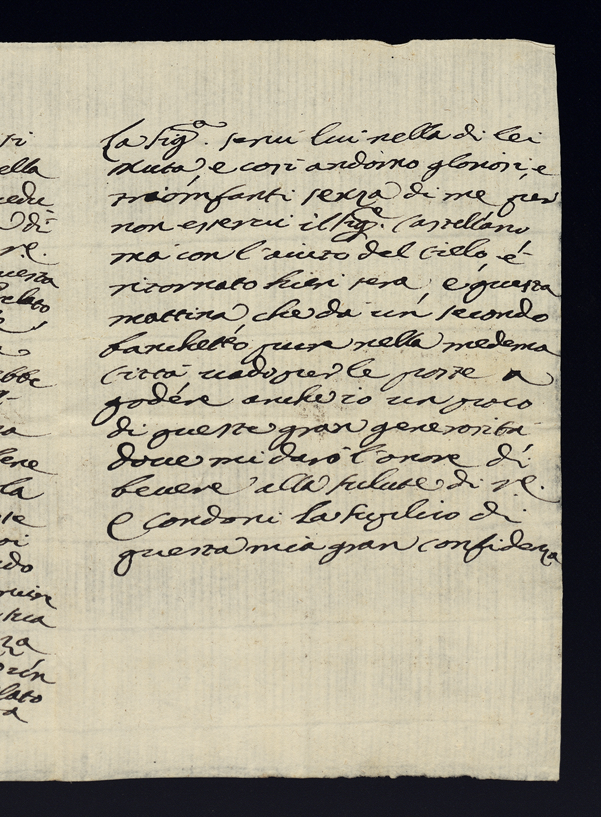 ella
di
uesta
la
do
lato
La Sig.a servì lui nella di lei
muta e così andorno gloriosi, e
triomfanti senza di me per
non esservi il Sig.e Castellano
ma con l'aiuto del Cielo è
ritornato hieri sera, e questa
mattina che dà un secondo
banchetto pur nella medema
Città vado per le poste a
godére anche io un poco
di queste gran generosità
dove mi darò l'onore di
bevere alla salute di
E condoni la suplico di
questa mia gran confidenza